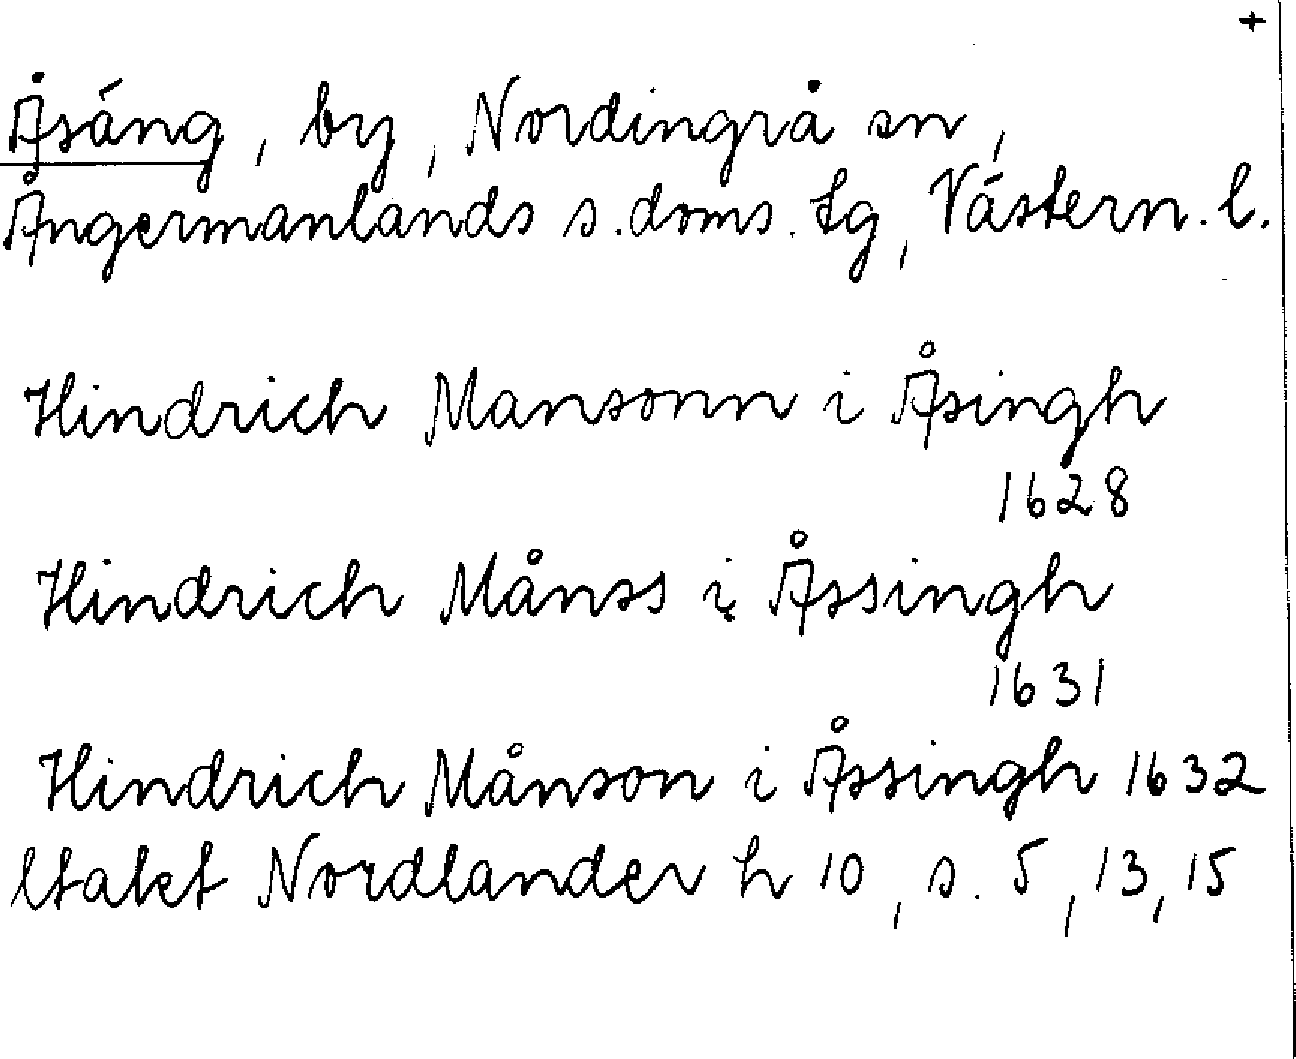 +
Åsäng, by, Nordingrå sn,
Ångermanlands s. doms. tg, Västern. l.
Hindrich Mansonn i Åsingh
1628
Hindrich Månss i Åssingh
1631
Hindrich Månson i Åssingh 1632
Nordlander h 10, s. 5, 13, 15